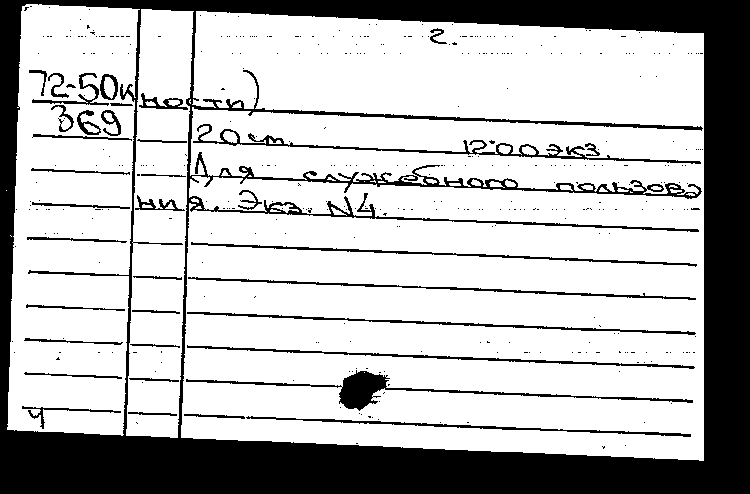 2.
72-50к ности)
369
20 см. 1200 экз.
Для служебного пользова
ния. Экз. N4.
ч